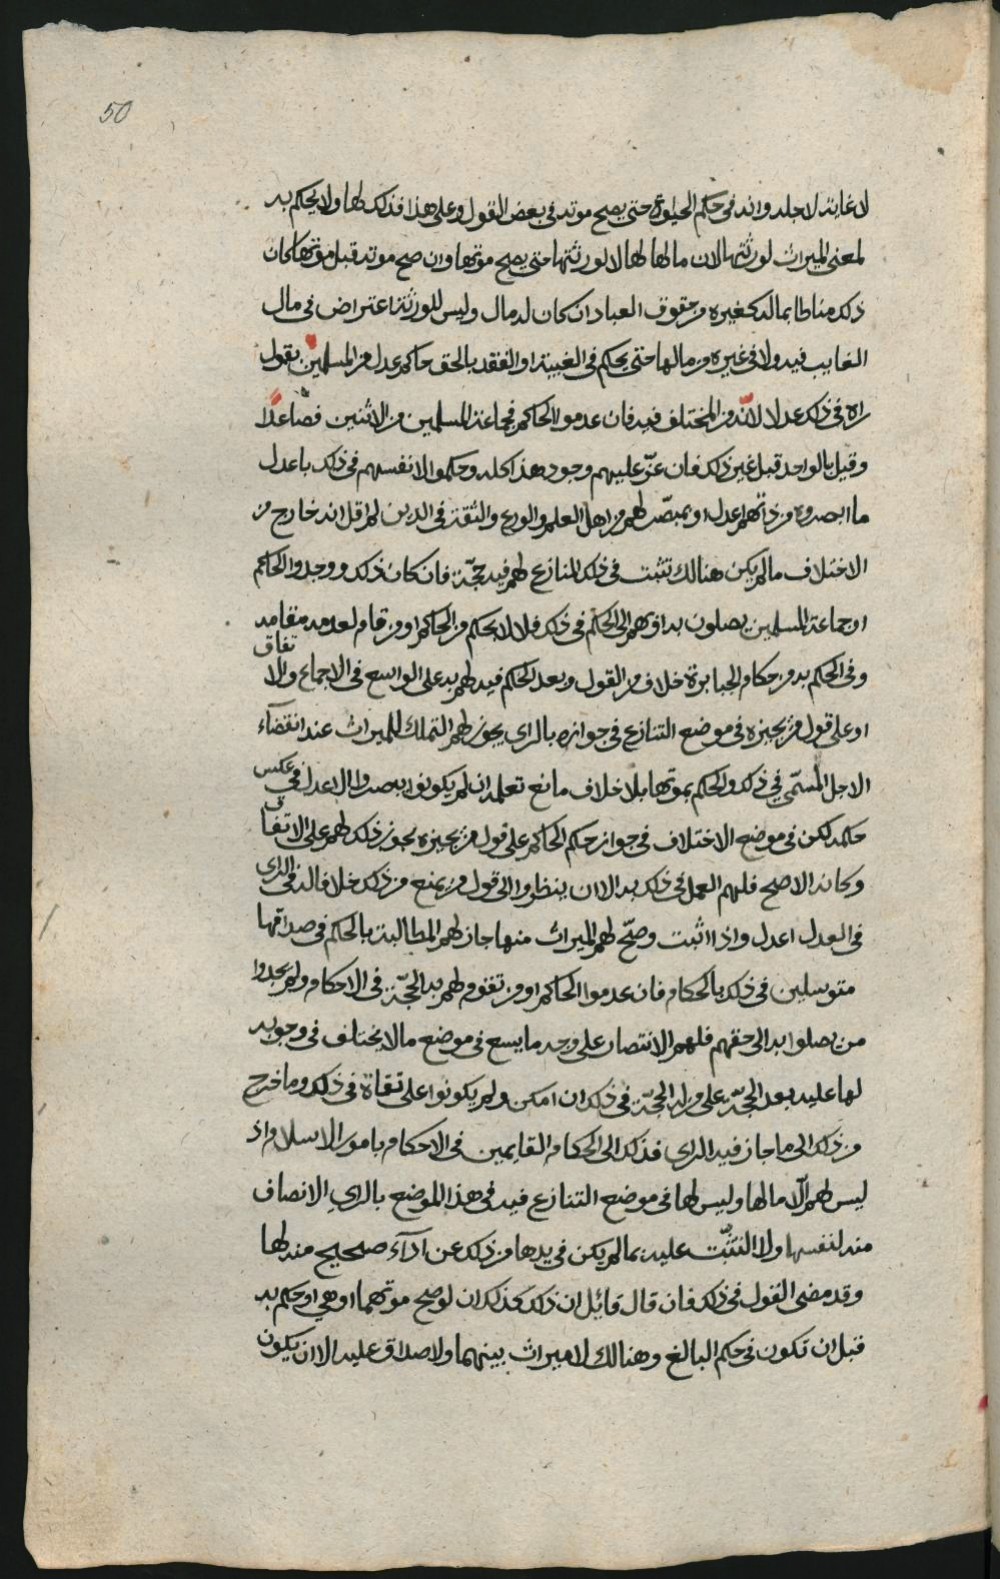 50
لا غاية لاجله وانه في حكم الحيوة حتى يصح موته في بعض القول وعلى هذا فذلك لها ولا يحكم به
لمعنى الميراث لورثتها لان مالها لها لا لورثتها حتى يصح موتها وان صح موته قبل موتها كان
ذلك مناطا بماله كغيره من حقوق العباد ان كان له مال وليس للورثة اعتراض في مال
الغايب فيه ولا في غيره من مالها حتى يحكم في الغيبة او الفقد بالحق حاكم عدل من المسلمين بقول
راه في ذلك عدلا لانّه من المختلف فيه فان عدموا الحاكم فجماعة المسلمين من الاثنين فصاعدًا
وقيل بالواحد قبل غير ذلك فان عزّ عليهم وجود هذا كله وحكموا لانفسهم في ذلك باعدل
ما ابصروه من ذاتهم اعدل او بمبصّر لهم من اهل العلم والورع والثقة في الدين لم اقل انه خارج من
الاختلاف ما لم يكن هنالك تثبت في ذلك لمنازع لهم فيه حجّة فان كان ذلك ووجدوا الحاكم
او جماعة المسلمين يصلون به او بهم الى الحكم في ذلك فلا الا بحكم من الحاكم او من قام لعدمه مقامه
وفي الحكم به من حكام الجبابرة خلاف من القول وبعد الحكم فيه لهم به على الواسع في الاجماع والاتفاق
او على قول من يجيزه في موضع التنازع في جوازه بالراي يجوز لهم التملك للميراث عند انقضآء
الاجل المسمّى في ذلك والحكم بموتها بلا خلاف ما نع تعلمه ان لم يكونوا ابصروا الاعدل في عكس
حكمه لكن في موضع الاختلاف في جواز حكم الحاكم على قول من يجيزه يجوز ذلك لهم على الاتفاق
وكانه الاصح فلهم العمل في ذلك به الا ان ينظروا الى قول من يمنع من ذلك خلافا له في الراي
في العدل اعدل واذا اثبت وصحّ لهم الميراث منها جاز لهم المطالبة بالحكم في صداقها
متوسلين في ذلك بالحكام فان عدموا الحاكم او من تقوم لهم به الحجّة في الاحكام ولم يجدوا
من يصلوا به الى حقهم فلهم الانتصار على وجه ما يسع في موضع ما لا يختلف في وجوبه
لها عليه بعد الحجّة على من له الحجّة في ذلك ان امكن ولم يكونوا على تقاة في ذلك وما خرج
من ذلك الى ما جاز فيه الراي فذلك الى الحكام القايمين في الاحكام بامور الاسلام اذ
ليس لهم الّا ما لها وليس لها في موضع التنازع فيه في هذا الموضع بالراي الانصاف
منه لنفسها ولا التثبّت عليه بما لم يكن في يدها من ذلك عن ادآء صحيح منه لها
وقد مضى القول في ذلك فان قال قائل ان ذلك كذلك ان لو صح موتهما او هي او حكم به
قبل ان تكون في حكم البالغ وهنالك لا ميراث بينهما ولا صداق عليه الا ان يكون